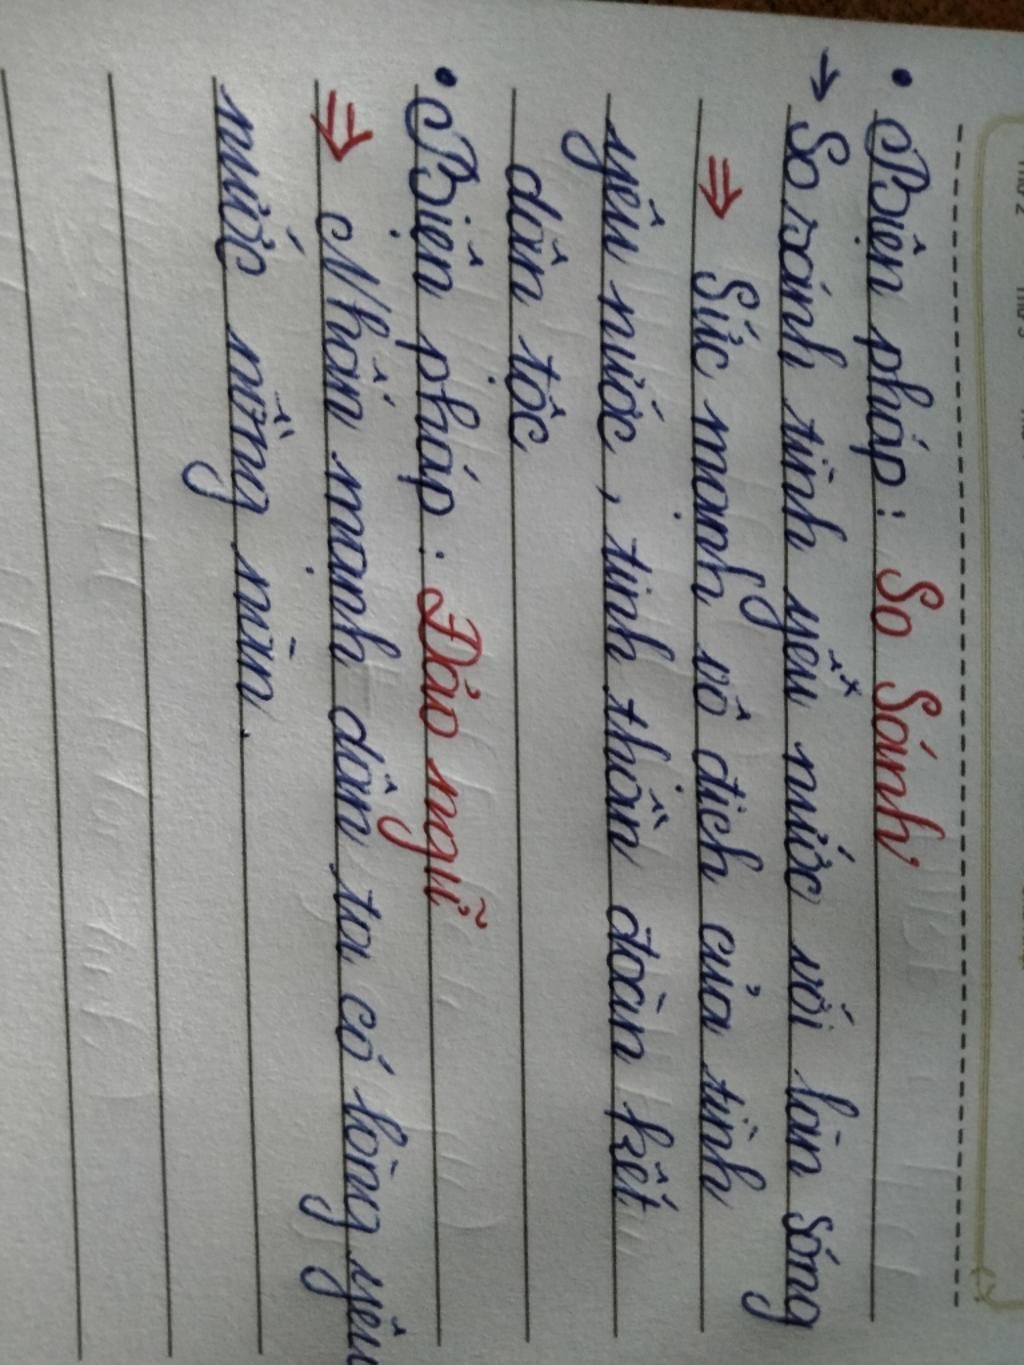 • Biện pháp: So Sánh
→ So sánh tình yêu nước với làn sóng
⇒ Sức mạnh vô địch của tình
yêu nước, tinh thần đoàn kết
dân tộc
• Biện pháp: Đảo ngữ
⇒ Nhấn mạnh dân ta có lòng yêu
nước nồng nàn.